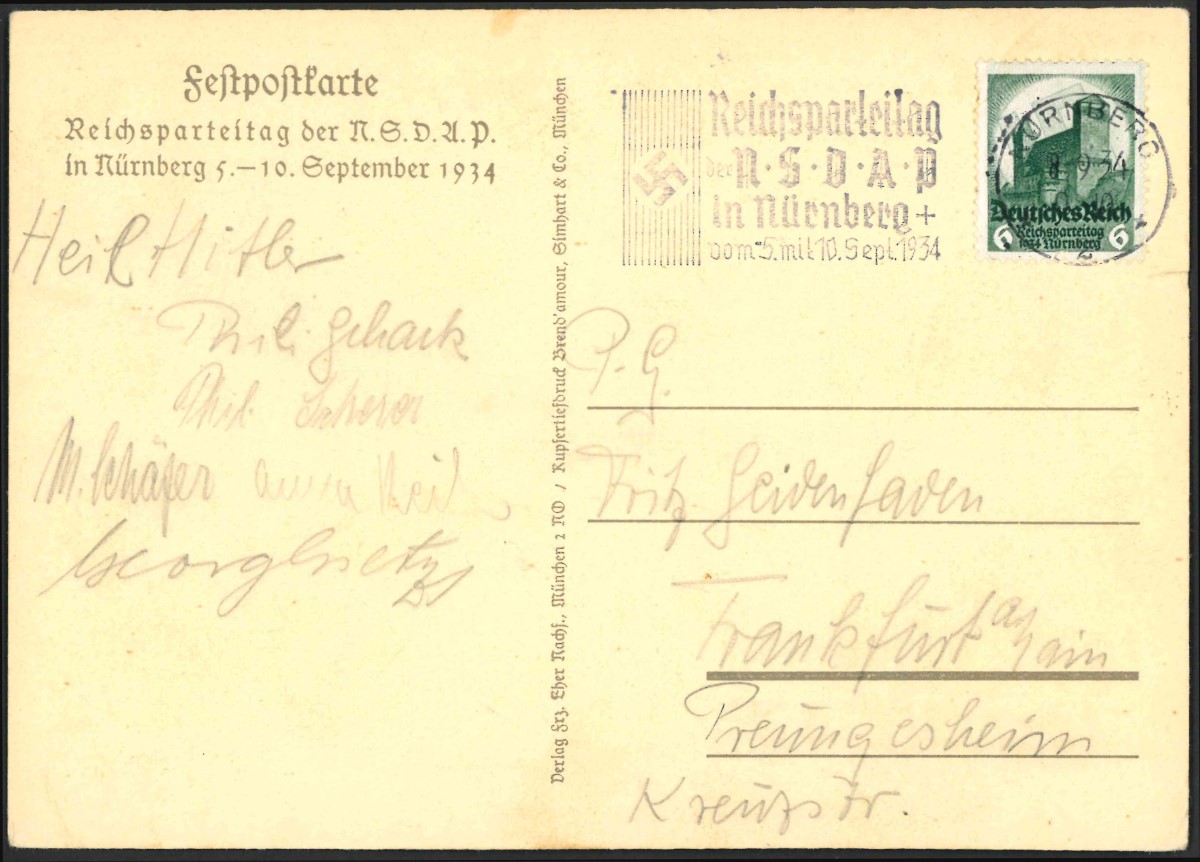 Festpostkarte
Reichsparteitag der N.S.D.A.P.
in Nürnberg 5.–10. September 1934
Heil Hitler
Phil. Scherer
M. Schäfer
Verlag Frz. Eher Nachf., München 2 NO / Kupfertiefdruck Brend'amour, Simhart & Co., München
Reichsparteitag
der N·S·D·A·P
in Nürnberg +
vom 5. mit 10. Sept. 1934
NÜRNBERG
8-9-34
2
Deutsches Reich
6 Reichsparteitag 6
1934 Nürnberg
P. G.
Fritz Seidenfaden
Frankfurt a/Main
Preungesheim
Kreuzstr.